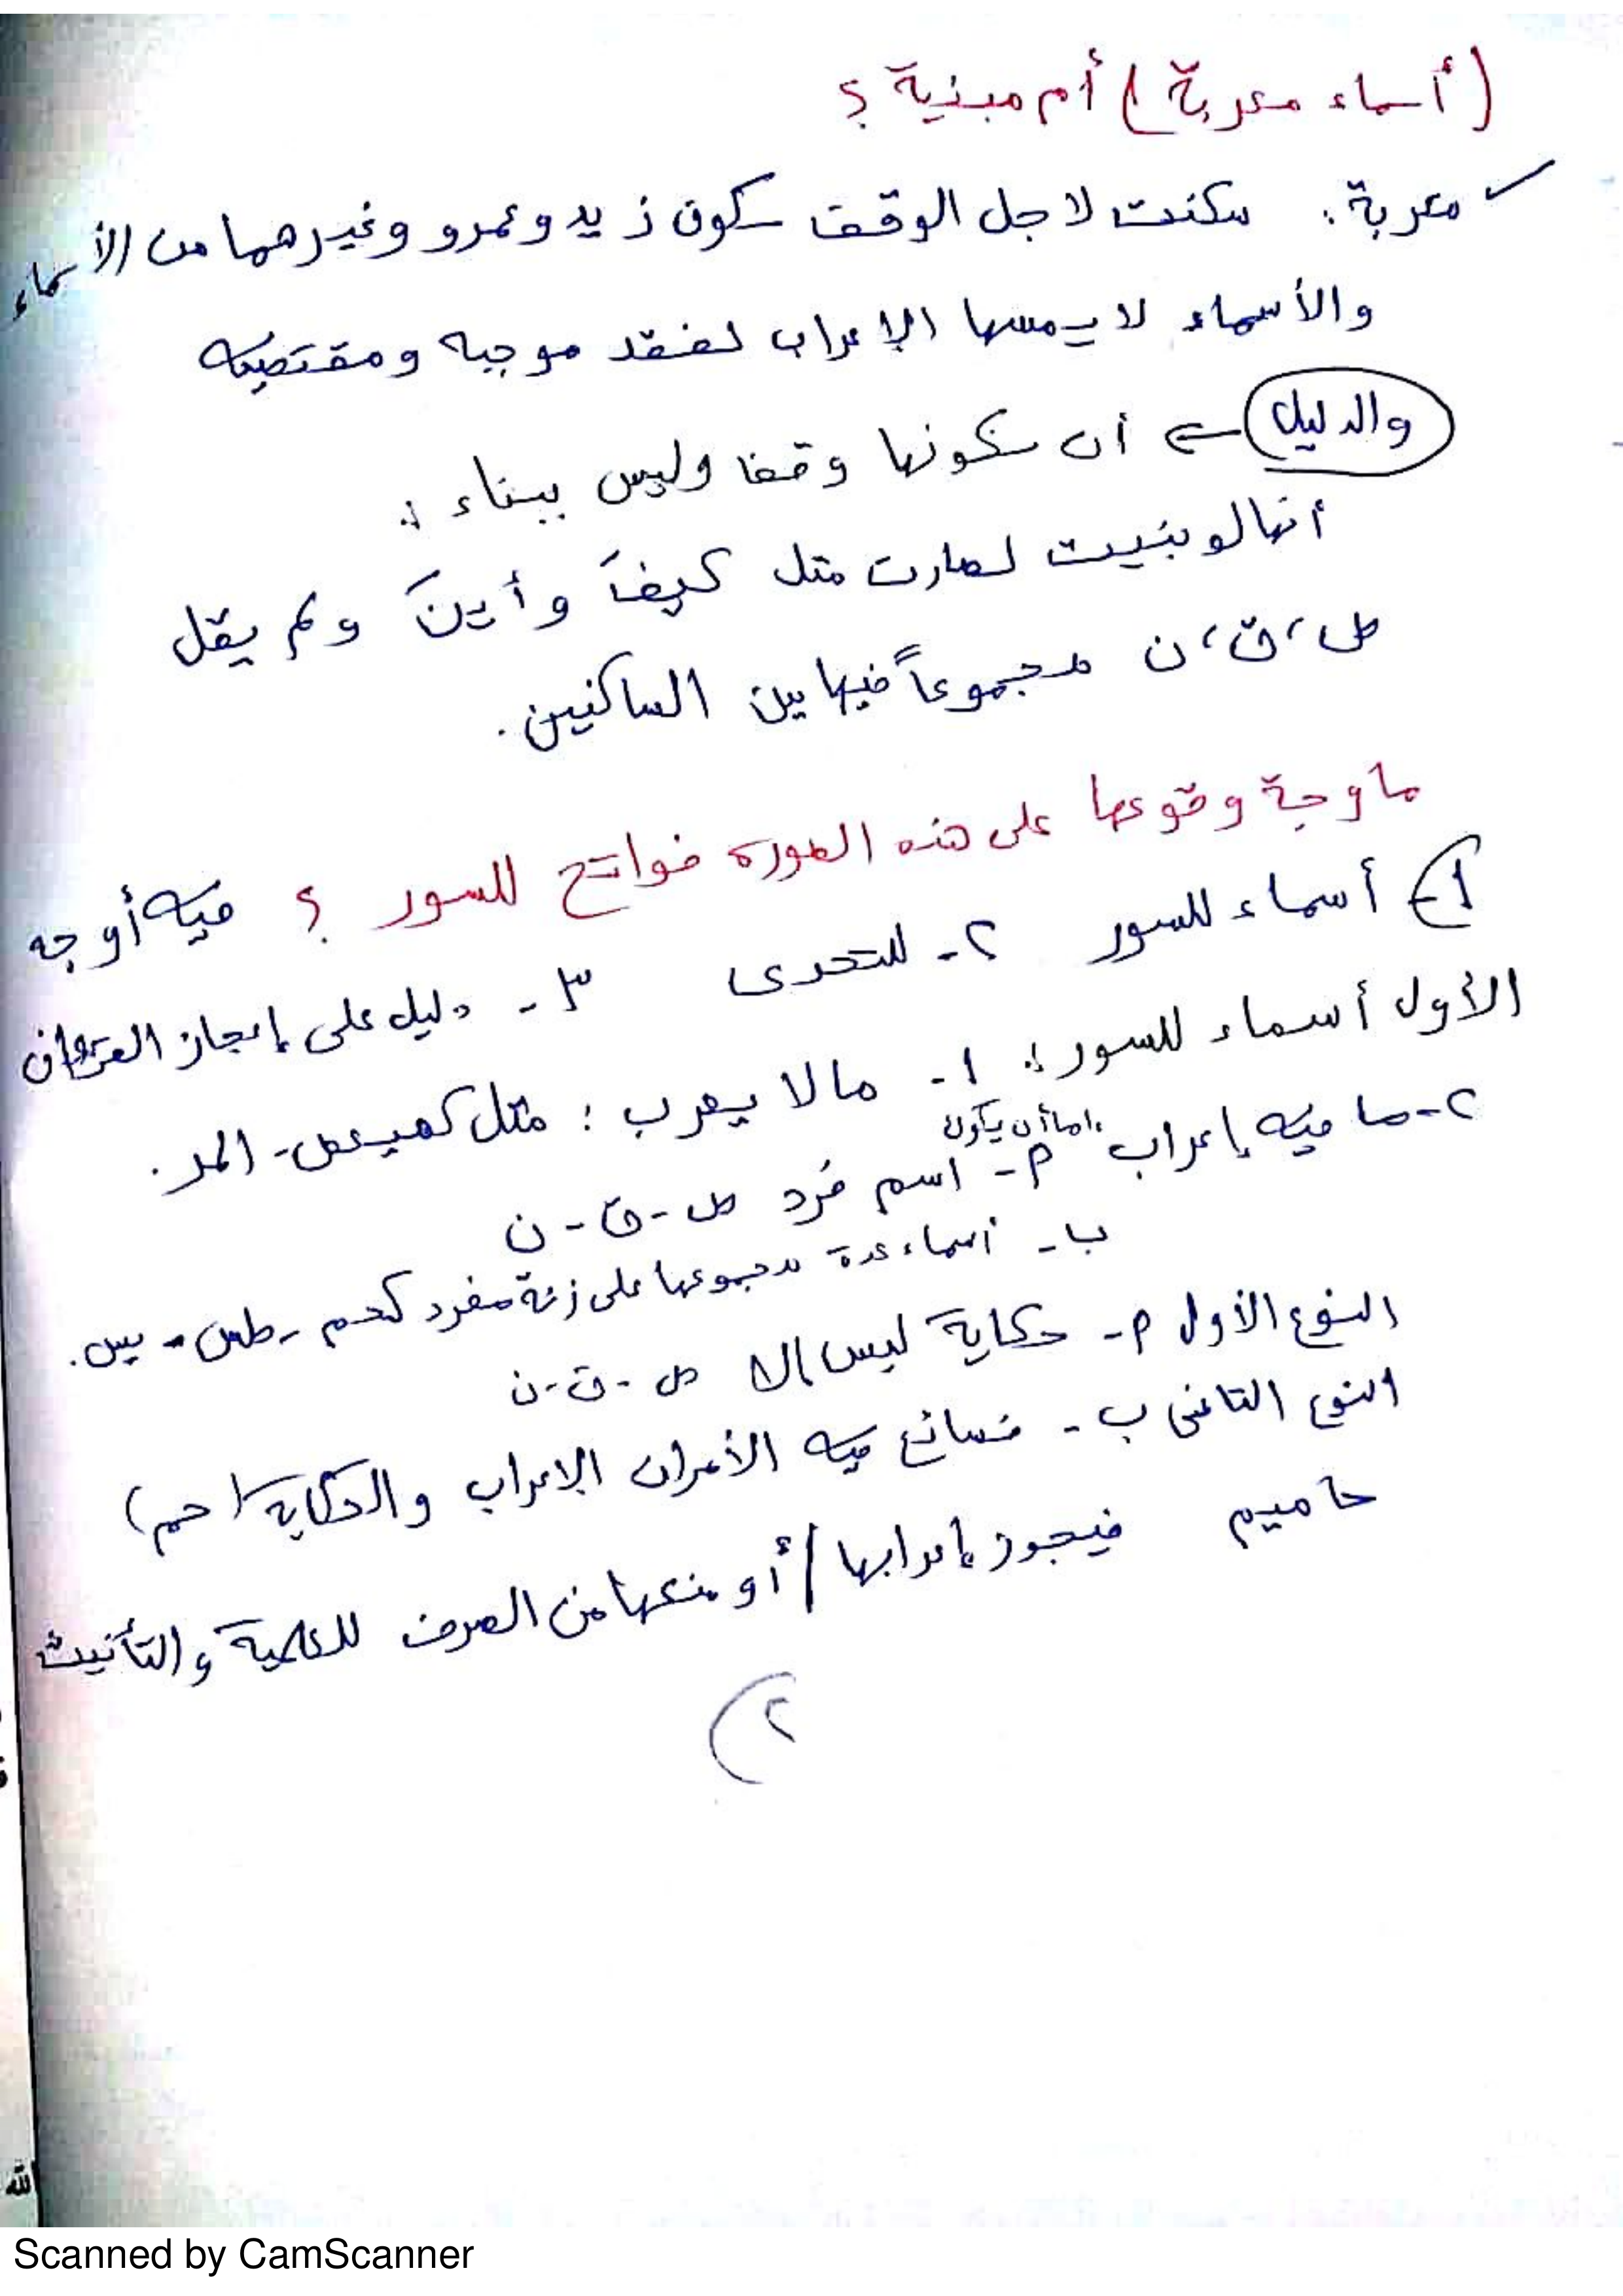 (أسماء معربة) أم مبنية ؟
معربة: سكنت لاجل الوقف سكون زيد وعمرو وغيرهما من الأسماء
والأسماء لا يمسها الإعراب لفقد موجبه ومقتضيه
والدليل ⇐ أن سكونها وقفا وليس ببناء :
أنها لو بنيت لصارت مثل كيفَ وأينَ ولم يقل
ص، ق، ن مجموعاً فيها بين الساكنين.
ما وجة وقوعها على هذه الصورة فواتح للسور ؟ فيه أوجه
١- أسماء للسور ٢- للتحدى ٣- دليل على إعجاز القرآن
الأول أسماء للسور : ١- مالا يعرب : مثل كهيعص - المر.
٢- ما فيه إعراب إما أن يكون أ- اسم فرد ص - ق - ن
ب- أسماء عدة مجموعها على زنة مفرد كحم - طس - يس.
النوع الأول أ- حكاية ليس إلا ص - ق - ن
النوع الثاني ب- فسائغ فيه الأمران الإعراب والحكاية (حم)
حاميم فيجوز إعرابها / أو منعها من الصرف للعلمية والتأنيث
٢
الله
Scanned by CamScanner